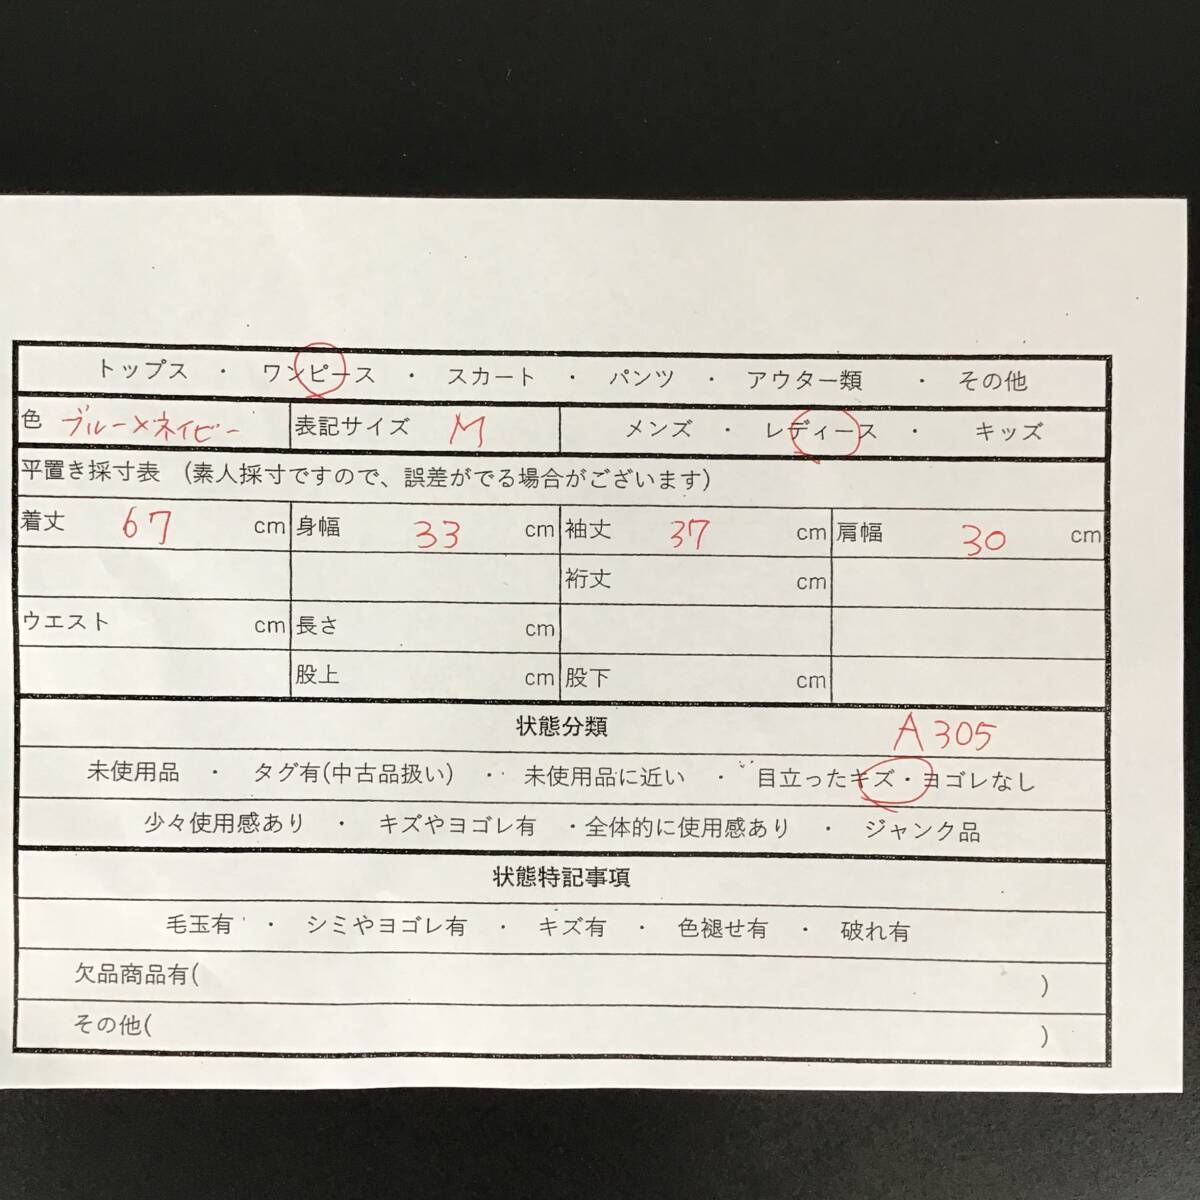 トップス ・ ワンピース ・ スカート ・ パンツ ・ アウター類 ・ その他
色 ブルー×ネイビー 表記サイズ M メンズ ・ レディース ・ キッズ
平置き採寸表 (素人採寸ですので、誤差がでる場合がございます)
着丈 67 cm 身幅 33 cm 袖丈 37 cm 肩幅 30 cm
裄丈 cm
ウエスト cm 長さ cm
股上 cm 股下 cm
状態分類 A305
未使用品 ・ タグ有(中古品扱い) ・ 未使用品に近い ・ 目立ったキズ・ヨゴレなし
少々使用感あり ・ キズやヨゴレ有 ・全体的に使用感あり ・ ジャンク品
状態特記事項
毛玉有 ・ シミやヨゴレ有 ・ キズ有 ・ 色褪せ有 ・ 破れ有
欠品商品有( )
その他( )